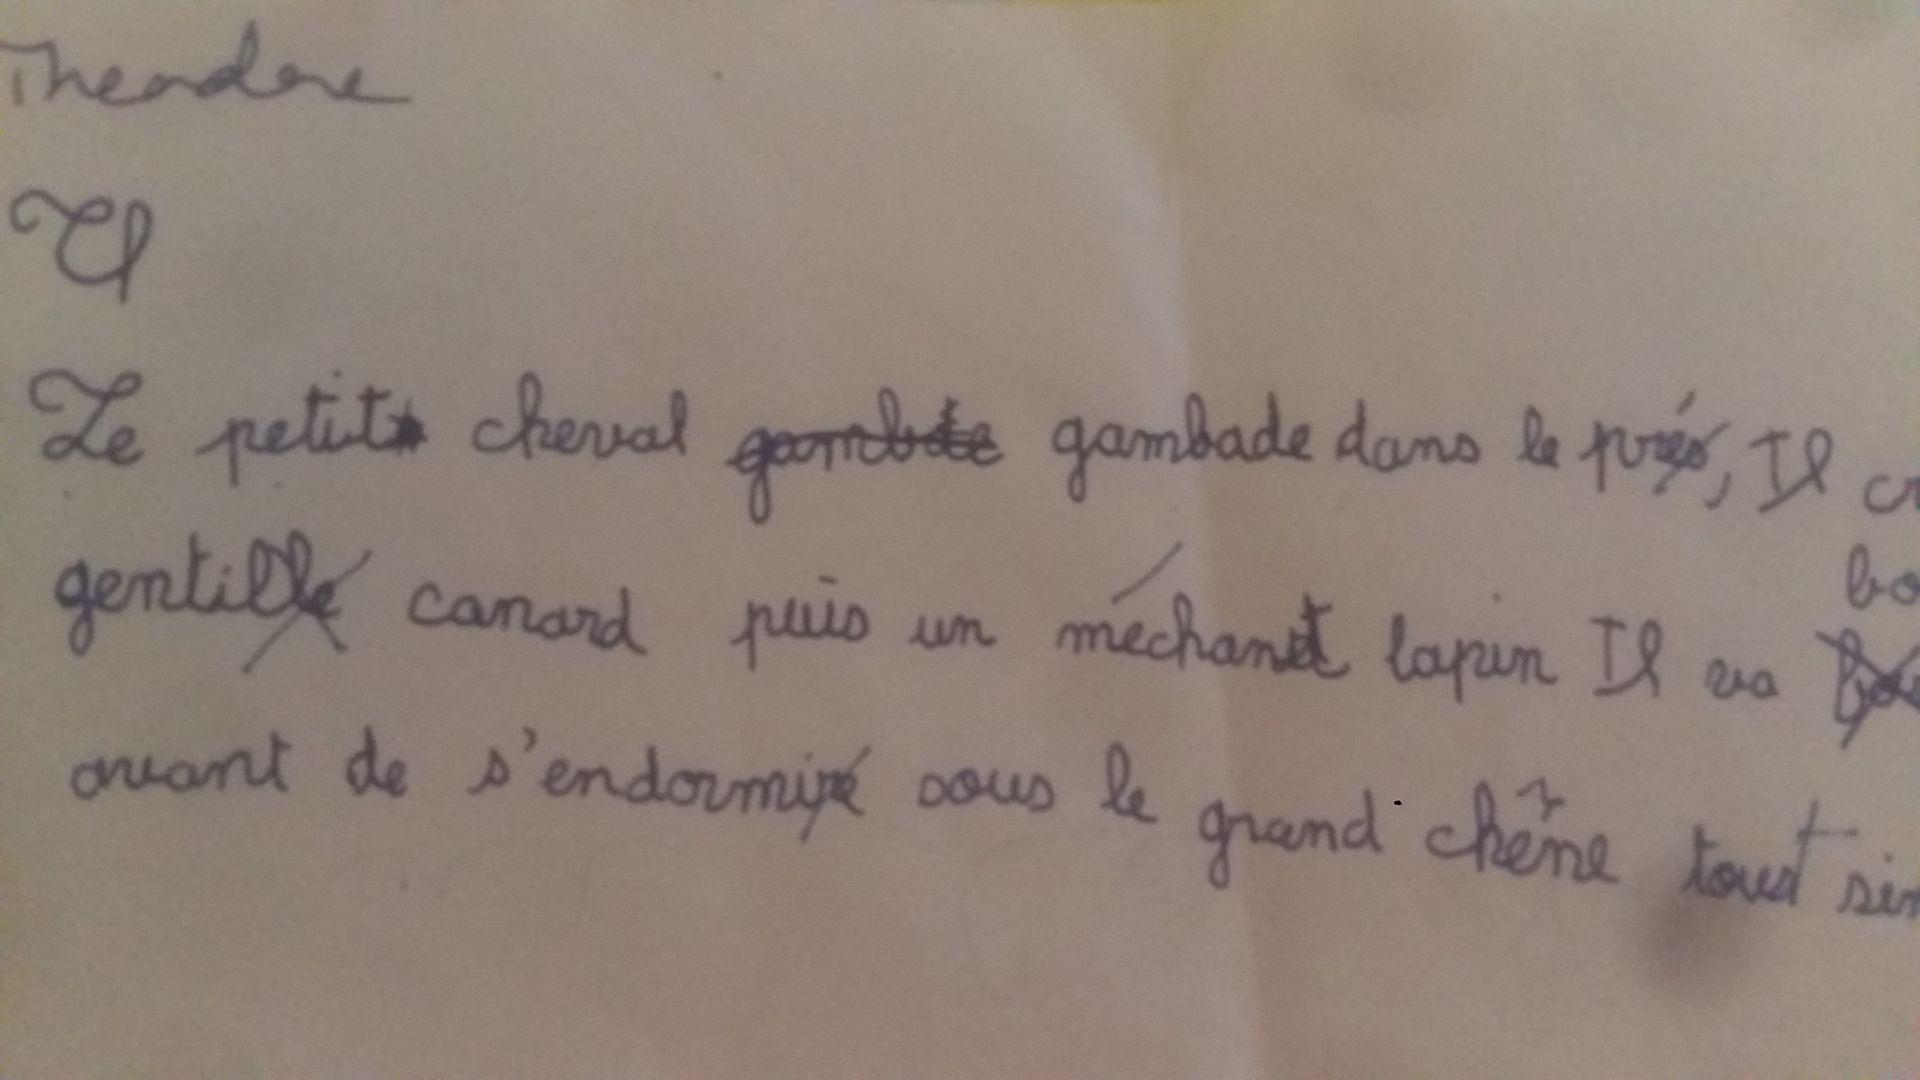 Theodore
Le petit cheval gambade dans le pré, Il
gentil canard puis un méchant lapin Il va
avant de s'endormir sous le grand chêne tout